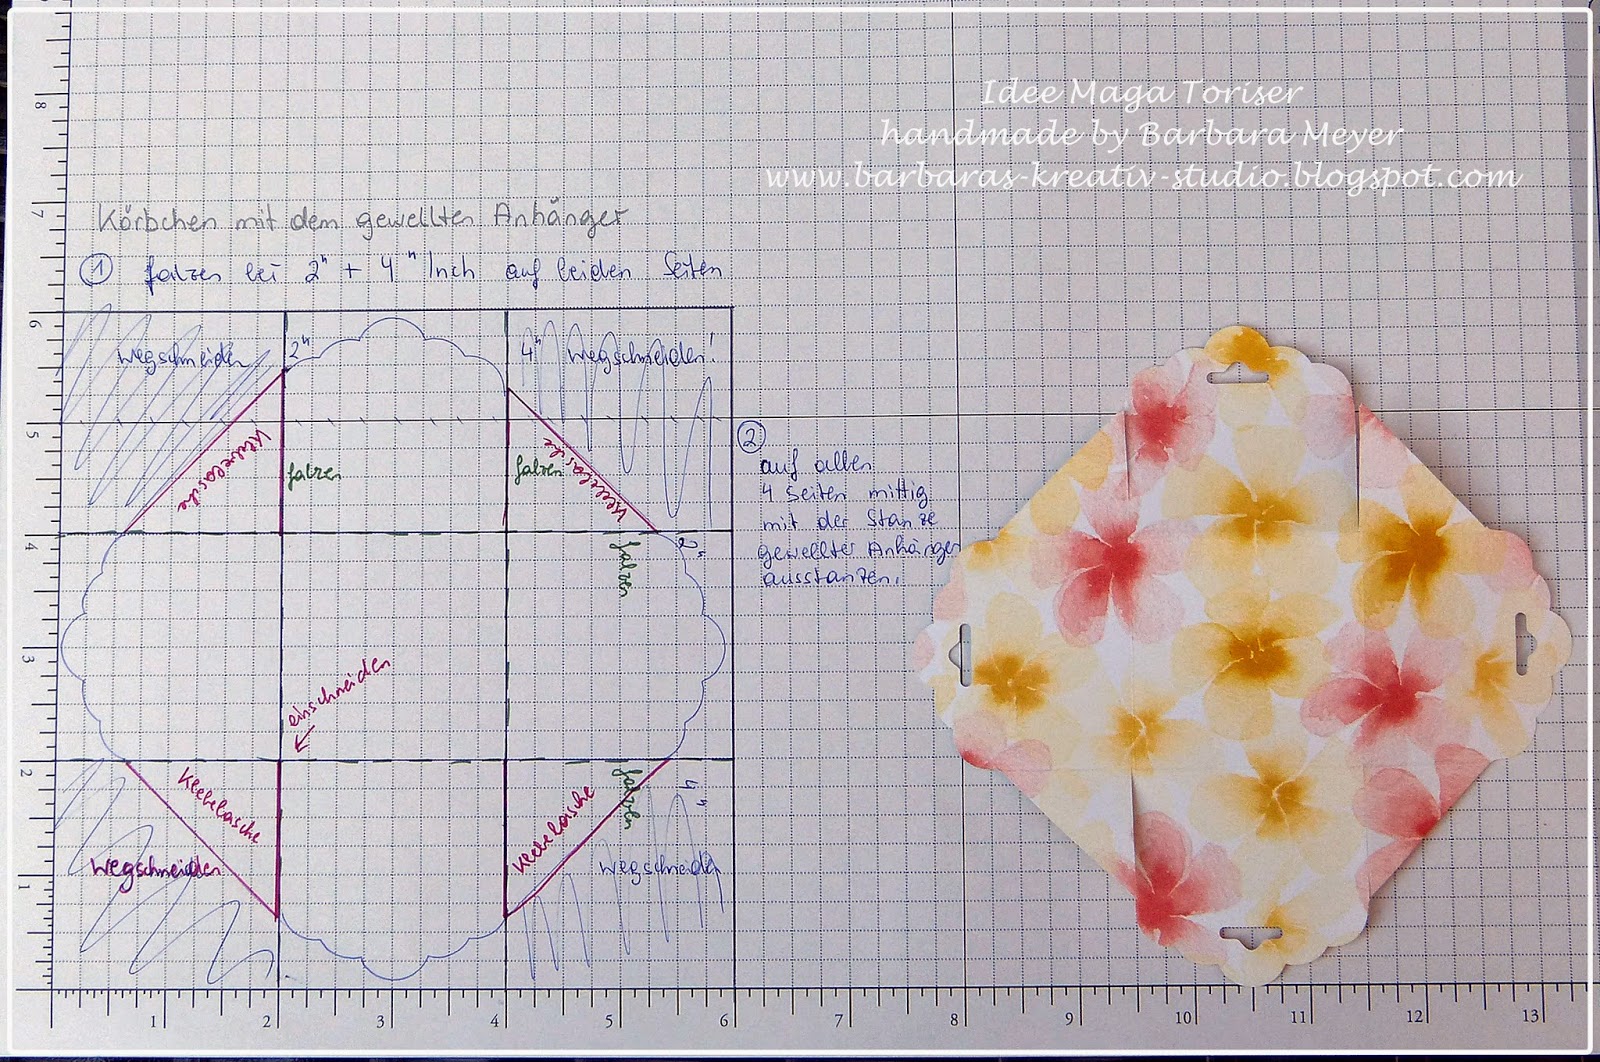 Idee Maga Toriser
handmade by Barbara Meyer
www.barbaras-kreativ-studio.blogspot.com
Körbchen mit dem gewellten Anhänger
① falzen bei 2" + 4" Inch auf beiden Seiten
wegschneiden
2"
4"
wegschneiden!
Klebelasche
falzen
falzen
Klebelasche
② auf allen
4 Seiten mittig
mit der Stanze
gewellter Anhänger
ausstanzen.
falzen
2"
einschneiden
Klebelasche
Klebelasche
falzen
4"
wegschneiden
wegschneiden
8
7
6
5
4
3
2
1
1 2 3 4 5 6 7 8 9 10 11 12 13